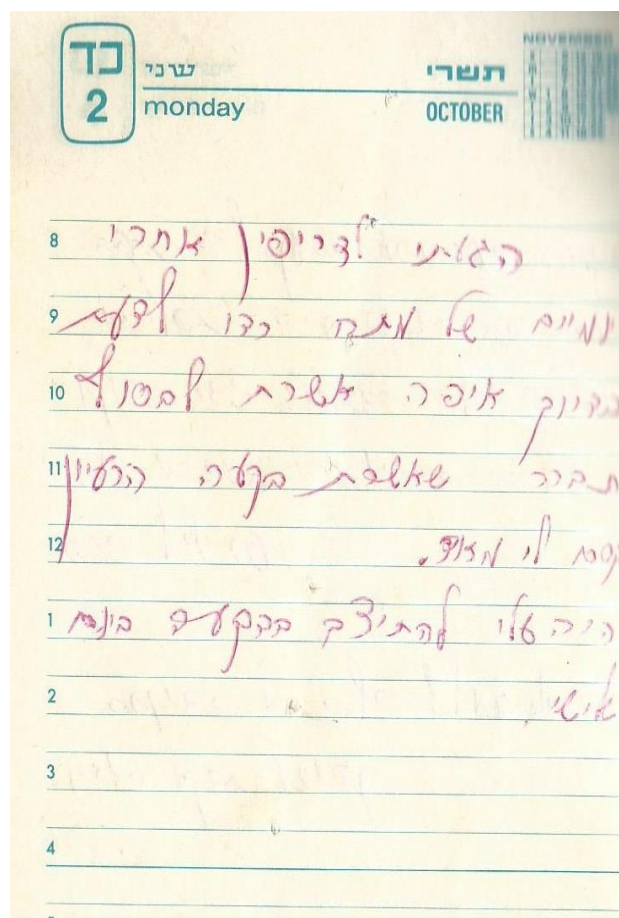 כד
2
שני
monday
תשרי
OCTOBER
NOVEMBER
8 הגעתי לצריפין אחרי
9 יומיים של מתח כדי לדעת
10 בדיוק איפה אשרת לבסוף
11 תברר שאשרת בקעה הרעיון
12 קסם לי מאוד.
1 היה עלי להתיצב בבקעה ביום
2 שלישי
3
4